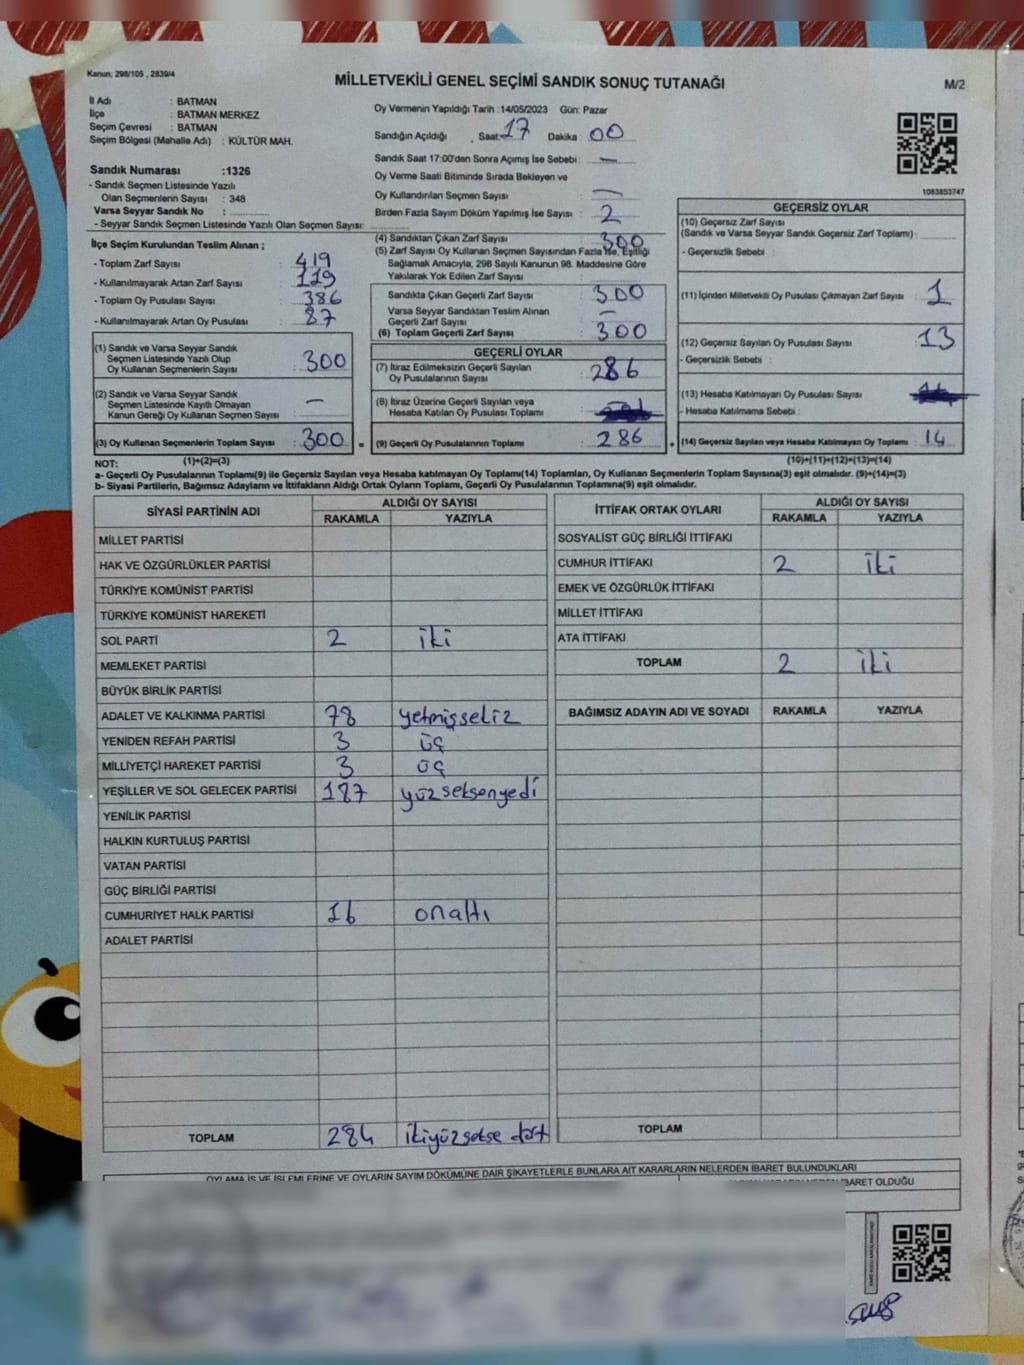 Kanun; 298/105 , 2839/4
MİLLETVEKİLİ GENEL SEÇİMİ SANDIK SONUÇ TUTANAĞI
M/2
İl Adı : BATMAN
İlçe : BATMAN MERKEZ
Seçim Çevresi : BATMAN
Seçim Bölgesi (Mahalle Adı) : KÜLTÜR MAH.
Sandık Numarası :1326
- Sandık Seçmen Listesinde Yazılı
Olan Seçmenlerin Sayısı : 348
Varsa Seyyar Sandık No :
- Seyyar Sandık Seçmen Listesinde Yazılı Olan Seçmen Sayısı:
Oy Vermenin Yapıldığı Tarih :14/05/2023 Gün: Pazar
Sandığın Açıldığı , Saat: 17 Dakika : 00
Sandık Saat 17:00'den Sonra Açımış İse Sebebi : —
Oy Verme Saati Bitiminde Sırada Bekleyen ve
Oy Kullandırılan Seçmen Sayısı : —
Birden Fazla Sayım Döküm Yapılmış İse Sayısı : 2
1083853747
İlçe Seçim Kurulundan Teslim Alınan ;
- Toplam Zarf Sayısı : 419
- Kullanılmayarak Artan Zarf Sayısı : 119
- Toplam Oy Pusulası Sayısı : 386
- Kullanılmayarak Artan Oy Pusulası : 87
(1) Sandık ve Varsa Seyyar Sandık
Seçmen Listesinde Yazılı Olup
Oy Kullanan Seçmenlerin Sayısı : 300
(2) Sandık ve Varsa Seyyar Sandık
Seçmen Listesinde Kayıtlı Olmayan
Kanun Gereği Oy Kullanan Seçmen Sayısı : —
(3) Oy Kullanan Seçmenlerin Toplam Sayısı : 300 =
(4) Sandıktan Çıkan Zarf Sayısı : 300
(5) Zarf Sayısı Oy Kullanan Seçmen Sayısından Fazla İse, Eşitliği
Sağlamak Amacıyla; 298 Sayılı Kanunun 98. Maddesine Göre
Yakılarak Yok Edilen Zarf Sayısı :
Sandıkta Çıkan Geçerli Zarf Sayısı : 300
Varsa Seyyar Sandıktan Teslim Alınan
Geçerli Zarf Sayısı : —
(6) Toplam Geçerli Zarf Sayısı : 300
GEÇERLİ OYLAR
(7) İtiraz Edilmeksizin Geçerli Sayılan
Oy Pusulalarının Sayısı : 286
(8) İtiraz Üzerine Geçerli Sayılan veya
Hesaba Katılan Oy Pusulası Toplamı :
(9) Geçerli Oy Pusulalarının Toplamı : 286 +
GEÇERSİZ OYLAR
(10) Geçersiz Zarf Sayısı
(Sandık ve Varsa Seyyar Sandık Geçersiz Zarf Toplamı) :
- Geçersizlik Sebebi :
(11) İçinden Milletvekili Oy Pusulası Çıkmayan Zarf Sayısı : 1
(12) Geçersiz Sayılan Oy Pusulası Sayısı : 13
- Geçersizlik Sebebi :
(13) Hesaba Katılmayan Oy Pusulası Sayısı :
- Hesaba Katılmama Sebebi :
(14) Geçersiz Sayılan veya Hesaba Katılmayan Oy Toplamı : 14
NOT: (1)+(2)=(3) (10)+(11)+(12)+(13)=(14)
a- Geçerli Oy Pusulaları Toplamı(9) ile Geçersiz Sayılan veya Hesaba katılmayan Oy Toplamı(14) Toplamları, Oy Kullanan Seçmenlerin Toplam Sayısına(3) eşit olmalıdır. (9)+(14)=(3)
b- Siyasi Partilerin, Bağımsız Adayların ve İttifakların Aldığı Ortak Oyların Toplamı, Geçerli Oy Pusulalarının Toplamına(9) eşit olmalıdır.
SİYASİ PARTİNİN ADI ALDIĞI OY SAYISI
RAKAMLA YAZIYLA
MİLLET PARTİSİ
HAK VE ÖZGÜRLÜKLER PARTİSİ
TÜRKİYE KOMÜNİST PARTİSİ
TÜRKİYE KOMÜNİST HAREKETİ
SOL PARTİ 2 iki
MEMLEKET PARTİSİ
BÜYÜK BİRLİK PARTİSİ
ADALET VE KALKINMA PARTİSİ 78 yetmişseliz
YENİDEN REFAH PARTİSİ 3 üç
MİLLİYETÇİ HAREKET PARTİSİ 3 üç
YEŞİLLER VE SOL GELECEK PARTİSİ 187 yüzseksenyedi
YENİLİK PARTİSİ
HALKIN KURTULUŞ PARTİSİ
VATAN PARTİSİ
GÜÇ BİRLİĞİ PARTİSİ
CUMHURİYET HALK PARTİSİ 16 onaltı
ADALET PARTİSİ
TOPLAM 284 ikiyüzsekse dört
İTTİFAK ORTAK OYLARI ALDIĞI OY SAYISI
RAKAMLA YAZIYLA
SOSYALİST GÜÇ BİRLİĞİ İTTİFAKI
CUMHUR İTTİFAKI 2 iki
EMEK VE ÖZGÜRLÜK İTTİFAKI
MİLLET İTTİFAKI
ATA İTTİFAKI
TOPLAM 2 iki
BAĞIMSIZ ADAYIN ADI VE SOYADI RAKAMLA YAZIYLA
TOPLAM
OYLAMA İŞ VE İŞLEMLERİNE VE OYLARIN SAYIM DÖKÜMÜNE DAİR ŞİKAYETLERLE BUNLARA AİT KARARLARIN NELERDEN İBARET BULUNDUKLARI
İBARET OLDUĞU